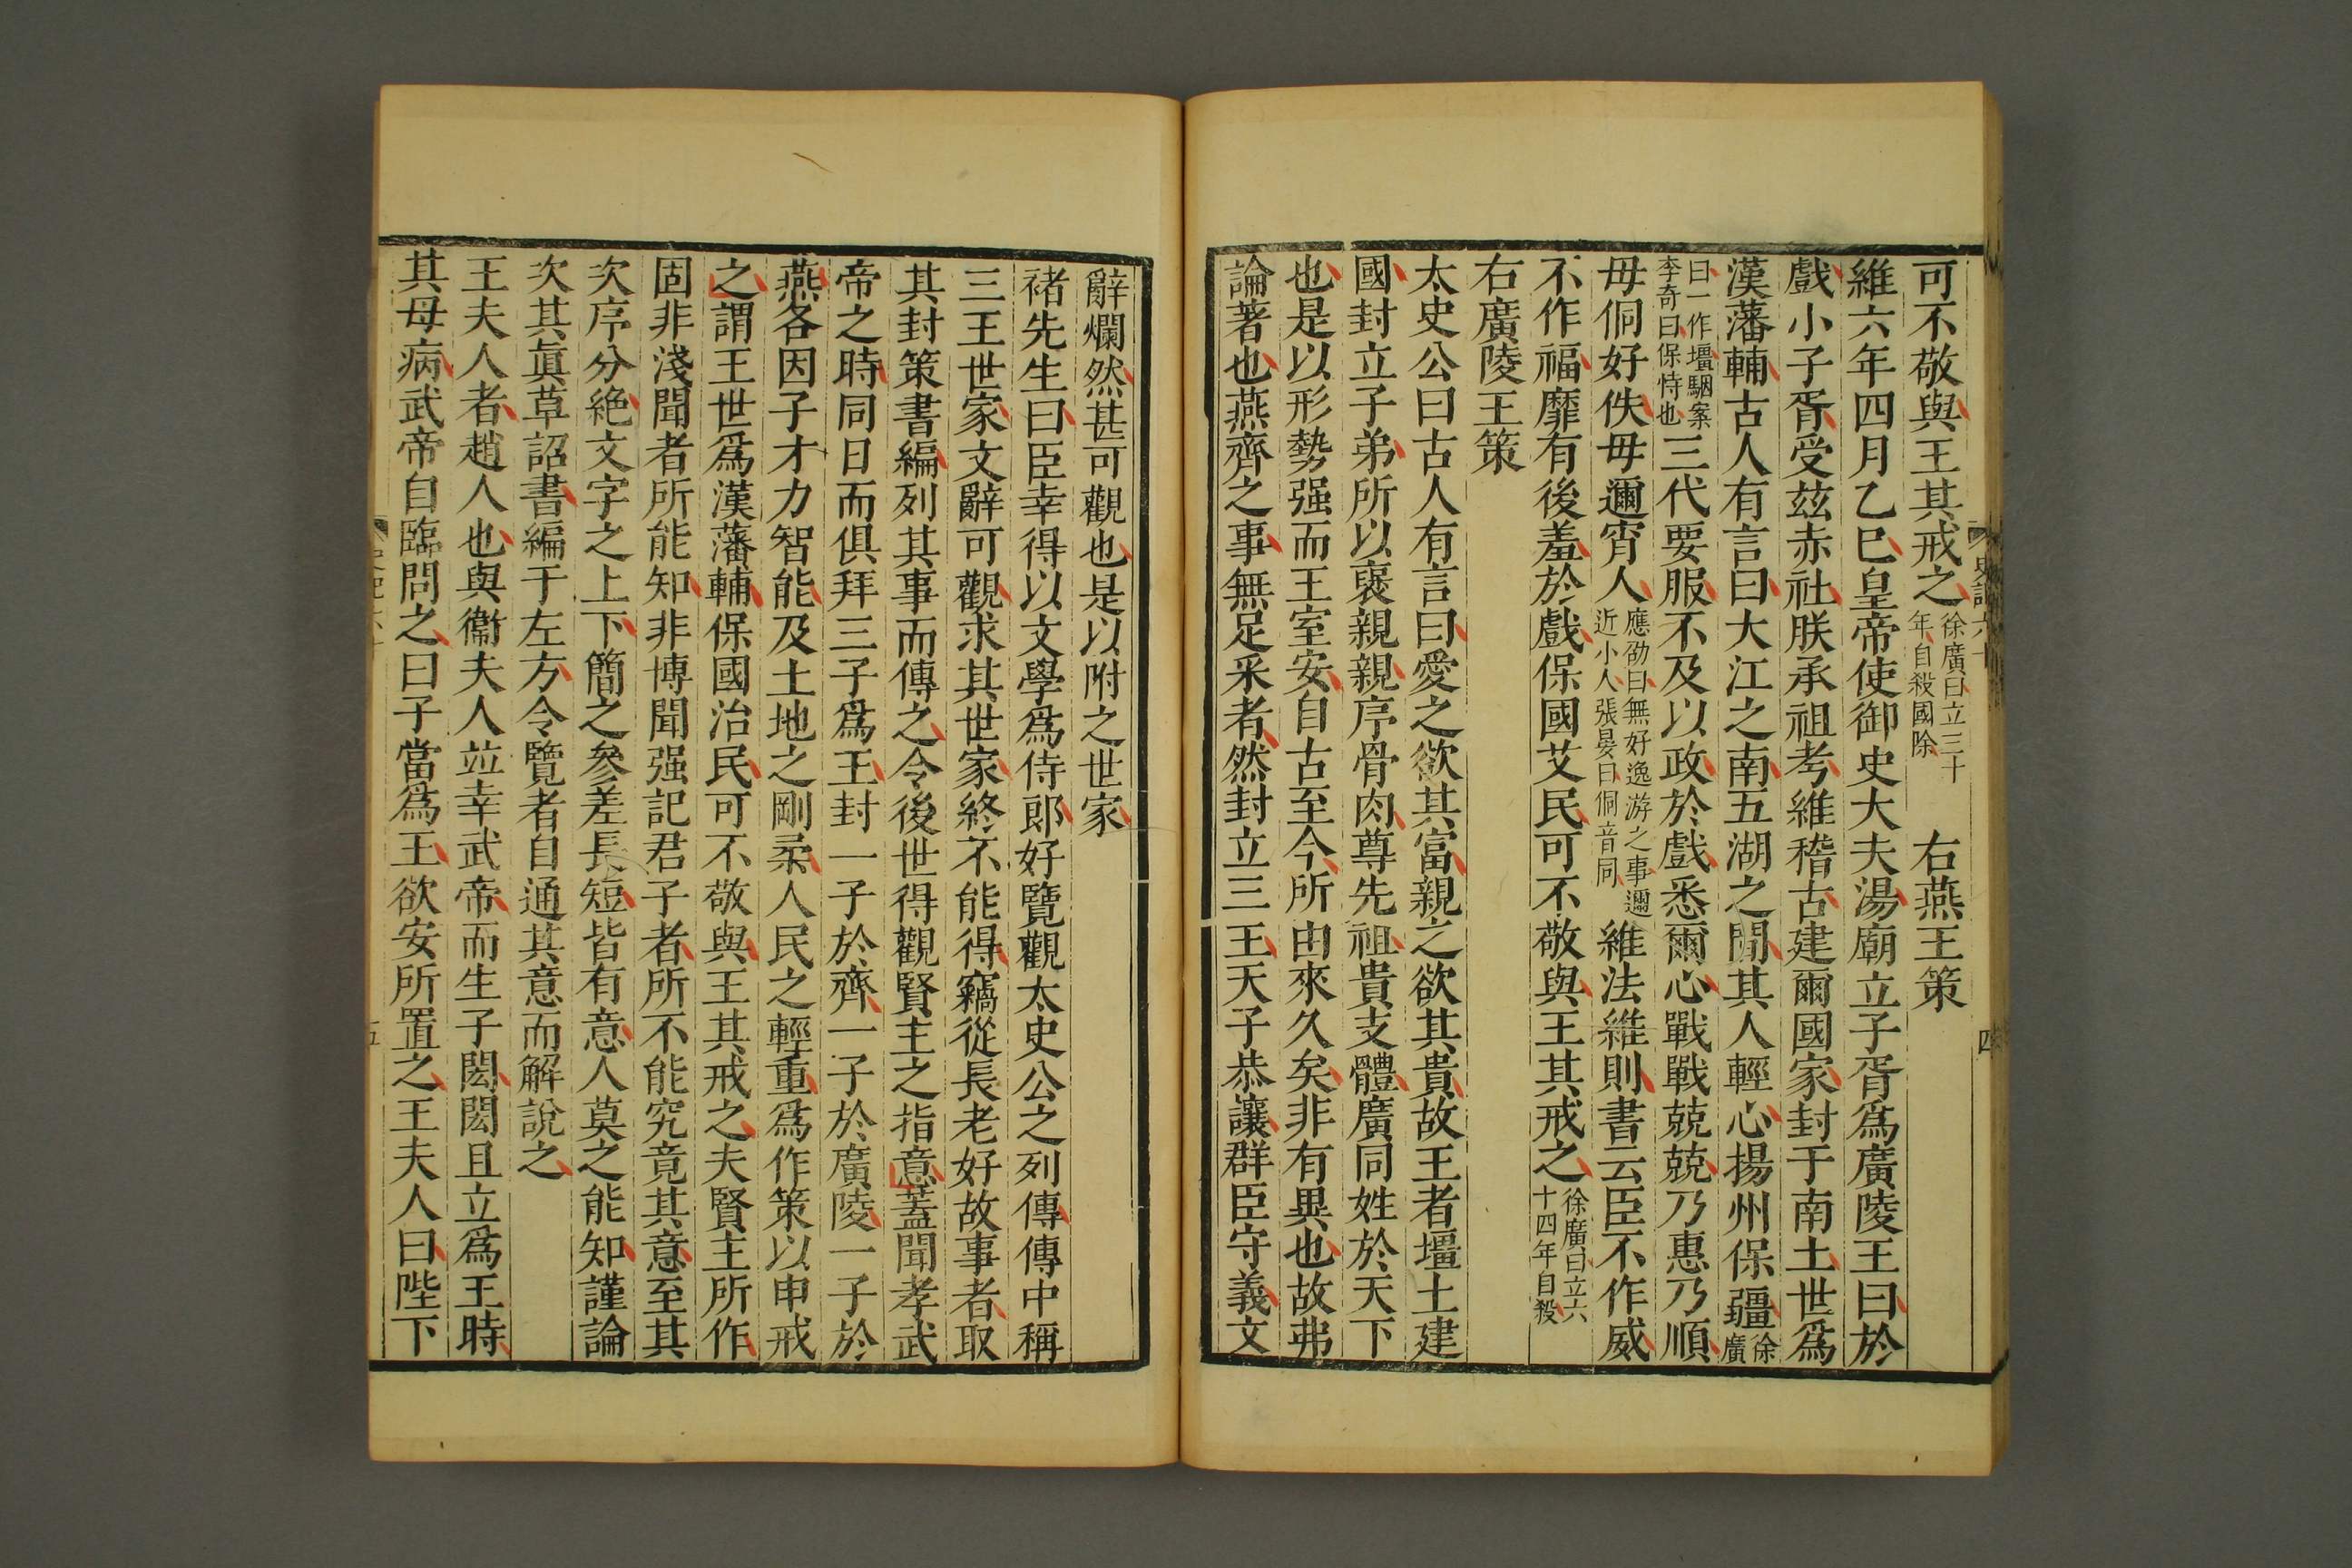 可不敬與王其戒之徐廣曰立三十年自殺國除　右燕王策
維六年四月乙巳皇帝使御史大夫湯廟立子胥爲廣陵王曰於
戲小子胥受玆赤社朕承祖考維稽古建爾國家封于南土世爲
漢藩輔古人有言曰大江之南五湖之閒其人輕心揚州保疆徐廣
曰一作壃駰案李奇曰保恃也三代要服不及以政於戲悉爾心戰戰兢兢乃惠乃順
毋侗好佚毋邇宵人應劭曰無好逸游之事邇近小人張晏曰侗音同維法維則書云臣不作威
不作福靡有後羞於戲保國艾民可不敬與王其戒之徐廣曰立六十四年自殺
右廣陵王策
太史公曰古人有言曰愛之欲其富親之欲其貴故王者壃土建
國封立子弟所以襃親親序骨肉尊先祖貴支體廣同姓於天下
也是以形勢强而王室安自古至今所由來久矣非有異也故弗
論著也燕齊之事無足采者然封立三王天子恭讓群臣守義文
史記六十
四
辭爛然甚可觀也是以附之世家
褚先生曰臣幸得以文學爲侍郎好覽觀太史公之列傳傳中稱
三王世家文辭可觀求其世家終不能得竊從長老好故事者取
其封策書編列其事而傳之令後世得觀賢主之指意蓋聞孝武
帝之時同日而俱拜三子爲王封一子於齊一子於廣陵一子於
燕各因子才力智能及土地之剛柔人民之輕重爲作策以申戒
之謂王世爲漢藩輔保國治民可不敬與王其戒之夫賢主所作
固非淺聞者所能知非博聞强記君子者所不能究竟其意至其
次序分絶文字之上下簡之參差長短皆有意人莫之能知謹論
次其眞草詔書編于左方令覽者自通其意而解說之
王夫人者趙人也與衞夫人竝幸武帝而生子閎閎且立爲王時
其母病武帝自臨問之曰子當爲王欲安所置之王夫人曰陛下